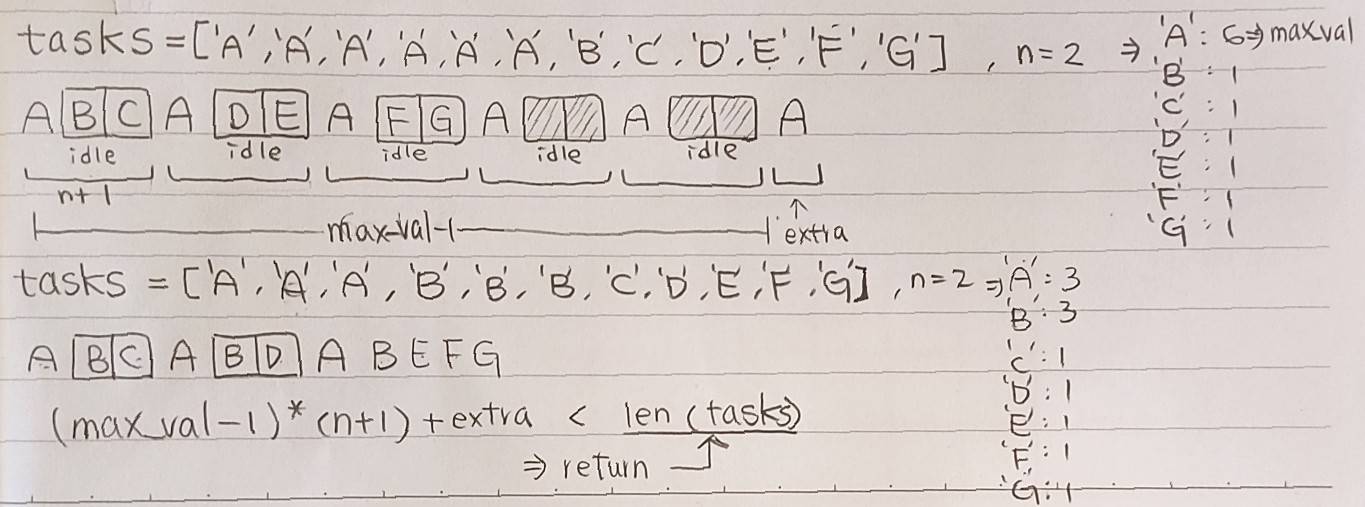 tasks=['A','A','A','A','A','A','B','C','D','E','F','G'] , n=2 ⇒ 'A': 6⇒maxval
'B': 1
'C': 1
'D': 1
'E': 1
'F': 1
'G': 1
A B C A D E A F G A A A
idle idle idle idle idle
n+1
max_val-1 extra
tasks = ['A','A','A','B','B','B','C','D','E','F','G'] , n=2 ⇒ 'A': 3
'B': 3
'C': 1
'D': 1
'E': 1
'F': 1
'G': 1
A B C A B D A B E F G
(max_val-1)*(n+1)+extra < len(tasks)
⇒ return